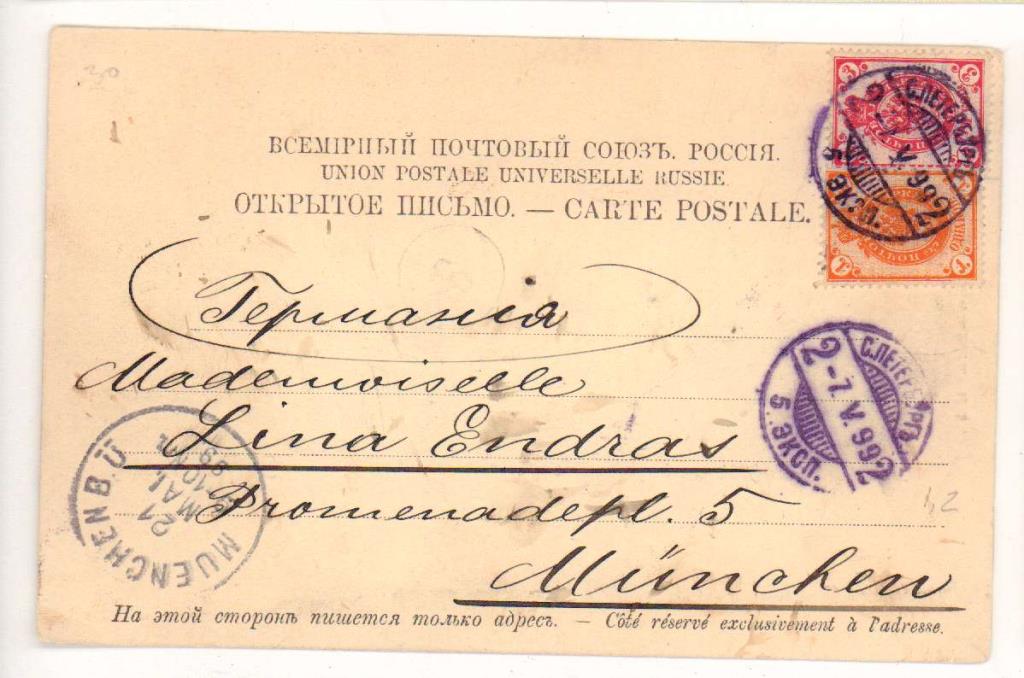 30
3 3
С.ПЕТЕРБУРГЪ
2-7.V.992
5 ЭКСП.
1 1
ВСЕМІРНЫЙ ПОЧТОВЫЙ СОЮЗЪ. РОССІЯ.
UNION POSTALE UNIVERSELLE RUSSIE.
ОТКРЫТОЕ ПИСЬМО. — CARTE POSTALE.
Германія
Mademoiselle
Lina Endras
Promenadepl. 5
München
С.ПЕТЕРБУРГЪ
2-7.V.992
5.ЭКСП.
MUENCHEN B.Ü
21
MAI
99
42
На этой сторонѣ пишется только адресъ. — Côté réservé exclusivement à l'adresse.